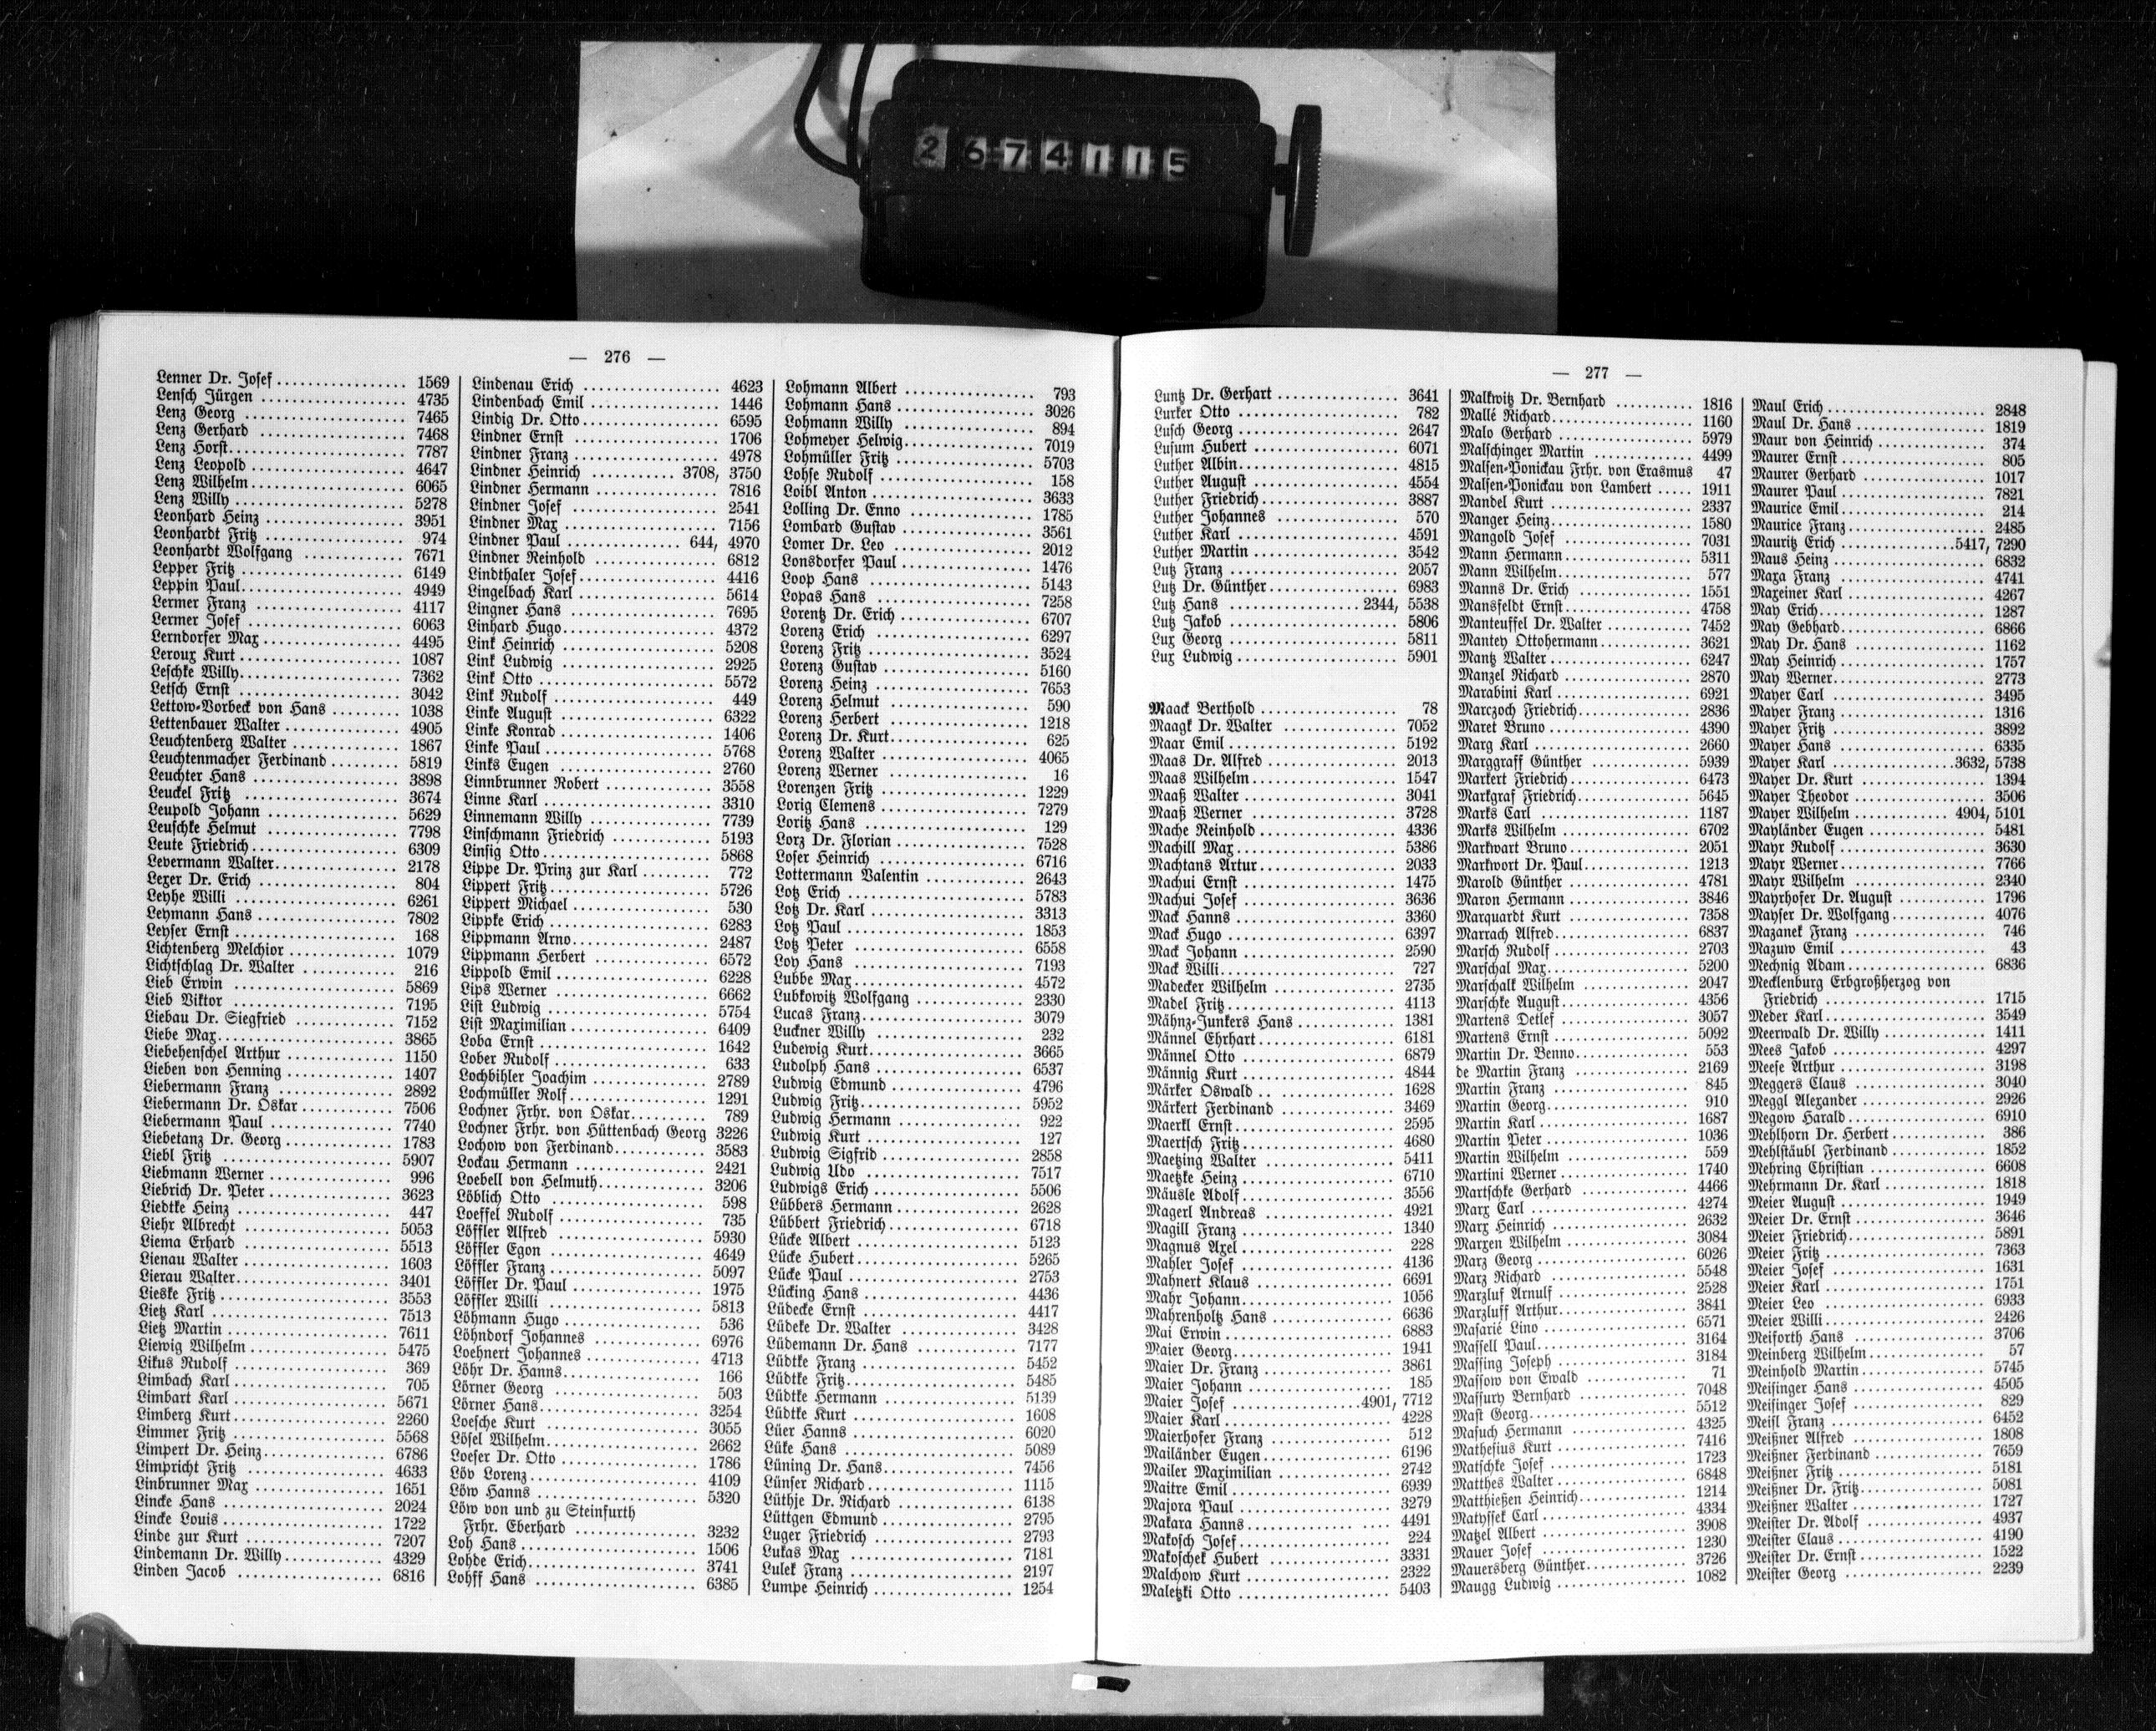 2674115
— 276 —
Lenner Dr. Josef 1569
Lensch Jürgen 4735
Lenz Georg 7465
Lenz Gerhard 7468
Lenz Horst 7787
Lenz Leopold 4647
Lenz Wilhelm 6065
Lenz Willy 5278
Leonhard Heinz 3951
Leonhardt Fritz 974
Leonhardt Wolfgang 7671
Lepper Fritz 6149
Leppin Paul 4949
Lermer Franz 4117
Lermer Josef 6063
Lerndorfer Max 4495
Leroux Kurt 1087
Leschke Willy 7362
Letsch Ernst 3042
Lettow-Vorbeck von Hans 1038
Lettenbauer Walter 4905
Leuchtenberg Walter 1867
Leuchtenmacher Ferdinand 5819
Leuchter Hans 3898
Leuckel Fritz 3674
Leupold Johann 5629
Leuschke Helmut 7798
Leute Friedrich 6309
Levermann Walter 2178
Lexer Dr. Erich 804
Leyhe Willi 6261
Leymann Hans 7802
Leyser Ernst 168
Lichtenberg Melchior 1079
Lichtschlag Dr. Walter 216
Lieb Erwin 5869
Lieb Viktor 7195
Liebau Dr. Siegfried 7152
Liebe Max 3865
Liebehenschel Arthur 1150
Lieben von Henning 1407
Liebermann Franz 2892
Liebermann Dr. Oskar 7506
Liebermann Paul 7740
Liebetanz Dr. Georg 1783
Liebl Fritz 5907
Liebmann Werner 996
Liebrich Dr. Peter 3623
Liedtke Heinz 447
Liehr Albrecht 5053
Liema Erhard 5513
Lienau Walter 1603
Lierau Walter 3401
Lieske Fritz 3553
Lietz Karl 7513
Lietz Martin 7611
Liewig Wilhelm 5475
Likus Rudolf 369
Limbach Karl 705
Limbart Karl 5671
Limberg Kurt 2260
Limmer Fritz 5568
Limpert Dr. Heinz 6786
Limpricht Fritz 4633
Linbrunner Max 1651
Lincke Hans 2024
Lincke Louis 1722
Linde zur Kurt 7207
Lindemann Dr. Willy 4329
Linden Jacob 6816
Lindenau Erich 4623
Lindenbach Emil 1446
Lindig Dr. Otto 6595
Lindner Ernst 1706
Lindner Franz 4978
Lindner Heinrich 3708, 3750
Lindner Hermann 7816
Lindner Josef 2541
Lindner Max 7156
Lindner Paul 644, 4970
Lindner Reinhold 6812
Lindthaler Josef 4416
Lingelbach Karl 5614
Lingner Hans 7695
Linhard Hugo 4372
Link Heinrich 5208
Link Ludwig 2925
Link Otto 5572
Link Rudolf 449
Linke August 6322
Linke Konrad 1406
Linke Paul 5768
Links Eugen 2760
Linnbrunner Robert 3558
Linne Karl 3310
Linnemann Willy 7739
Linschmann Friedrich 5193
Linsig Otto 5868
Lippe Dr. Prinz zur Karl 772
Lippert Fritz 5726
Lippert Michael 530
Lippke Erich 6283
Lippmann Arno 2487
Lippmann Herbert 6572
Lippold Emil 6228
Lips Werner 6662
List Ludwig 5754
List Maximilian 6409
Loba Ernst 1642
Lober Rudolf 633
Lochbihler Joachim 2789
Lochmüller Rolf 1291
Lochner Frhr. von Oskar 789
Lochner Frhr. von Hüttenbach Georg 3226
Lochow von Ferdinand 3583
Lockau Hermann 2421
Loebell von Helmuth 3206
Löblich Otto 598
Loeffel Rudolf 735
Löffler Alfred 5930
Löffler Egon 4649
Löffler Franz 5097
Löffler Dr. Paul 1975
Löffler Willi 5813
Löhmann Hugo 536
Löhndorf Johannes 6976
Loehnert Johannes 4713
Löhr Dr. Hanns 166
Lörner Georg 503
Lörner Hans 3254
Loesche Kurt 3055
Lösel Wilhelm 2662
Loeser Dr. Otto 1786
Löv Lorenz 4109
Löw Hanns 5320
Löw von und zu Steinfurth
Frhr. Eberhard 3232
Loh Hans 1506
Lohde Erich 3741
Lohff Hans 6385
Lohmann Albert 793
Lohmann Hans 3026
Lohmann Willy 894
Lohmeyer Helwig 7019
Lohmüller Fritz 5703
Lohse Rudolf 158
Loibl Anton 3633
Lolling Dr. Enno 1785
Lombard Gustav 3561
Lomer Dr. Leo 2012
Lonsdorfer Paul 1476
Loop Hans 5143
Lopas Hans 7258
Lorentz Dr. Erich 6707
Lorenz Erich 6297
Lorenz Fritz 3524
Lorenz Gustav 5160
Lorenz Heinz 7653
Lorenz Helmut 590
Lorenz Herbert 1218
Lorenz Dr. Kurt 625
Lorenz Walter 4065
Lorenz Werner 16
Lorenzen Fritz 1229
Lorig Clemens 7279
Loritz Hans 129
Lorz Dr. Florian 7528
Loser Heinrich 6716
Lottermann Valentin 2643
Lotz Erich 5783
Lotz Dr. Karl 3313
Lotz Paul 1853
Lotz Peter 6558
Loy Hans 7193
Lubbe Max 4572
Lubkowitz Wolfgang 2330
Lucas Franz 3079
Luckner Willy 232
Ludewig Kurt 3665
Ludolph Hans 6537
Ludwig Edmund 4796
Ludwig Fritz 5952
Ludwig Hermann 922
Ludwig Kurt 127
Ludwig Sigfrid 2858
Ludwig Udo 7517
Ludwigs Erich 5506
Lübbers Hermann 2628
Lübbert Friedrich 6718
Lücke Albert 5123
Lücke Hubert 5265
Lücke Paul 2753
Lücking Hans 4436
Lüdecke Ernst 4417
Lüdeke Dr. Walter 3428
Lüdemann Dr. Hans 7177
Lüdtke Franz 5452
Lüdtke Fritz 5485
Lüdtke Hermann 5139
Lüdtke Kurt 1608
Lüer Hanns 6020
Lüke Hans 5089
Lüning Dr. Hans 7456
Lünser Richard 1115
Lüthje Dr. Richard 6138
Lüttgen Edmund 2795
Luger Friedrich 2793
Lukas Max 7181
Lulek Franz 2197
Lumpe Heinrich 1254
— 277 —
Luntz Dr. Gerhart 3641
Lurker Otto 782
Lusch Georg 2647
Lusum Hubert 6071
Luther Albin 4815
Luther August 4554
Luther Friedrich 3887
Luther Johannes 570
Luther Karl 4591
Luther Martin 3542
Lutz Franz 2057
Lutz Dr. Günther 6983
Lutz Hans 2344, 5538
Lutz Jakob 5806
Lux Georg 5811
Lux Ludwig 5901
Maack Berthold 78
Maagk Dr. Walter 7052
Maar Emil 5192
Maas Dr. Alfred 2013
Maas Wilhelm 1547
Maaß Walter 3041
Maaß Werner 3728
Mache Reinhold 4336
Machill Max 5386
Machtans Artur 2033
Machui Ernst 1475
Machui Josef 3636
Mack Hanns 3360
Mack Hugo 6397
Mack Johann 2590
Mack Willi 727
Madecker Wilhelm 2735
Madel Fritz 4113
Mähnz-Junkers Hans 1381
Männel Ehrhart 6181
Männel Otto 6879
Männig Kurt 4844
Märker Oswald 1628
Märkert Ferdinand 3469
Maerkl Ernst 2595
Maertsch Fritz 4680
Maetzing Walter 5411
Maetzke Heinz 6710
Mäusle Adolf 3556
Magerl Andreas 4921
Magill Franz 1340
Magnus Axel 228
Mahler Josef 4136
Mahnert Klaus 6691
Mahr Johann 1056
Mahrenholtz Hans 6636
Mai Erwin 6883
Maier Georg 1941
Maier Dr. Franz 3861
Maier Johann 185
Maier Josef 4901, 7712
Maier Karl 4228
Maierhofer Franz 512
Mailänder Eugen 6196
Mailer Maximilian 2742
Maitre Emil 6939
Majora Paul 3279
Makara Hanns 4491
Makosch Josef 224
Makoschek Hubert 3331
Malchow Kurt 2322
Maletzki Otto 5403
Malkwitz Dr. Bernhard 1816
Mallé Richard 1160
Malo Gerhard 5979
Malschinger Martin 4499
Malsen-Ponickau Frhr. von Erasmus 47
Malsen-Ponickau von Lambert 1911
Mandel Kurt 2337
Manger Heinz 1580
Mangold Josef 7031
Mann Hermann 5311
Mann Wilhelm 577
Manns Dr. Erich 1551
Mansfeldt Ernst 4758
Manteuffel Dr. Walter 7452
Mantey Ottohermann 3621
Mantz Walter 6247
Manzel Richard 2870
Marabini Karl 6921
Marczoch Friedrich 2836
Maret Bruno 4390
Marg Karl 2660
Marggraff Günther 5939
Markert Friedrich 6473
Markgraf Friedrich 5645
Marks Carl 1187
Marks Wilhelm 6702
Markwart Bruno 2051
Markwort Dr. Paul 1213
Marold Günther 4781
Maron Hermann 3846
Marquardt Kurt 7358
Marrach Alfred 6837
Marsch Rudolf 2703
Marschal Max 5200
Marschalk Wilhelm 2047
Marschke August 4356
Martens Detlef 3057
Martens Ernst 5092
Martin Dr. Benno 553
de Martin Franz 2169
Martin Franz 845
Martin Georg 910
Martin Karl 1687
Martin Peter 1036
Martin Wilhelm 559
Martini Werner 1740
Martschke Gerhard 4466
Marx Carl 4274
Marx Heinrich 2632
Marxen Wilhelm 3084
Marz Georg 6026
Marz Richard 5548
Marzluf Arnulf 2528
Marzluff Arthur 3841
Masarié Lino 6571
Massell Paul 3164
Massing Joseph 3184
Massow von Ewald 71
Massury Bernhard 7048
Mast Georg 5512
Masuch Hermann 4325
Mathesius Kurt 7416
Matschke Josef 1723
Matthes Walter 6848
Matthießen Heinrich 1214
Matyssek Carl 4334
Matzel Albert 3908
Mauer Josef 1230
Mauersberg Günther 3726
Maugg Ludwig 1082
Maul Erich 2848
Maul Dr. Hans 1819
Maur von Heinrich 374
Maurer Ernst 805
Maurer Gerhard 1017
Maurer Paul 7821
Maurice Emil 214
Maurice Franz 2485
Mauritz Erich 5417, 7290
Maus Heinz 6832
Maxa Franz 4741
Maxeiner Karl 4267
May Erich 1287
May Gebhard 6866
May Dr. Hans 1162
May Heinrich 1757
May Werner 2773
Mayer Carl 3495
Mayer Franz 1316
Mayer Fritz 3892
Mayer Hans 6335
Mayer Karl 3632, 5738
Mayer Dr. Kurt 1394
Mayer Theodor 3506
Mayer Wilhelm 4904, 5101
Mayländer Eugen 5481
Mayr Rudolf 3630
Mayr Werner 7766
Mayr Wilhelm 2340
Mayrhofer Dr. August 1796
Mayser Dr. Wolfgang 4076
Mazanek Franz 746
Mazuw Emil 43
Mechnig Adam 6836
Mecklenburg Erbgroßherzog von
Friedrich 1715
Meder Karl 3549
Meerwald Dr. Willy 1411
Mees Jakob 4297
Meese Arthur 3198
Meggers Claus 3040
Meggl Alexander 2926
Megow Harald 6910
Mehlhorn Dr. Herbert 386
Mehlstäubl Ferdinand 1852
Mehring Christian 6608
Mehrmann Dr. Karl 1818
Meier August 1949
Meier Dr. Ernst 3646
Meier Friedrich 5891
Meier Fritz 7363
Meier Josef 1631
Meier Karl 1751
Meier Leo 6933
Meier Willi 2426
Meiforth Hans 3706
Meinberg Wilhelm 57
Meinhold Martin 5745
Meisinger Hans 4505
Meisinger Josef 829
Meisl Franz 6452
Meißner Alfred 1808
Meißner Ferdinand 7659
Meißner Fritz 5181
Meißner Dr. Fritz 5081
Meißner Walter 1727
Meister Dr. Adolf 4937
Meister Claus 4190
Meister Dr. Ernst 1522
Meister Georg 2239